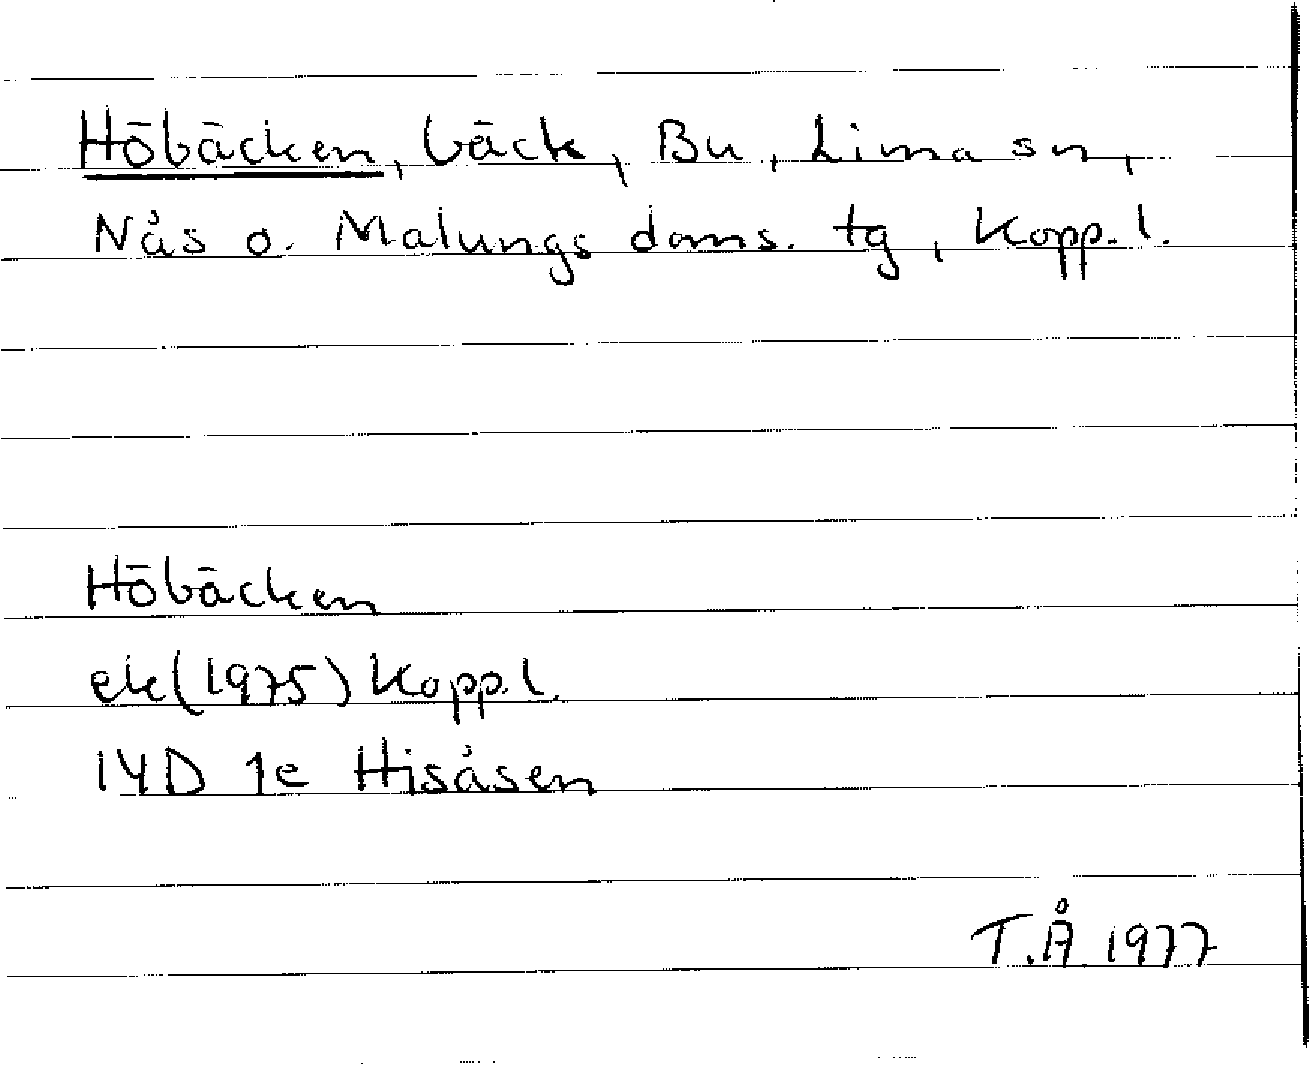 Höbäcken, bäck, Bu, Lima sn,
Nås o. Malungs doms. tg, Kopp. l.
Höbäcken
ek (1975) Kopp. l.
14D 1e Hisåsen
T.Å 1977